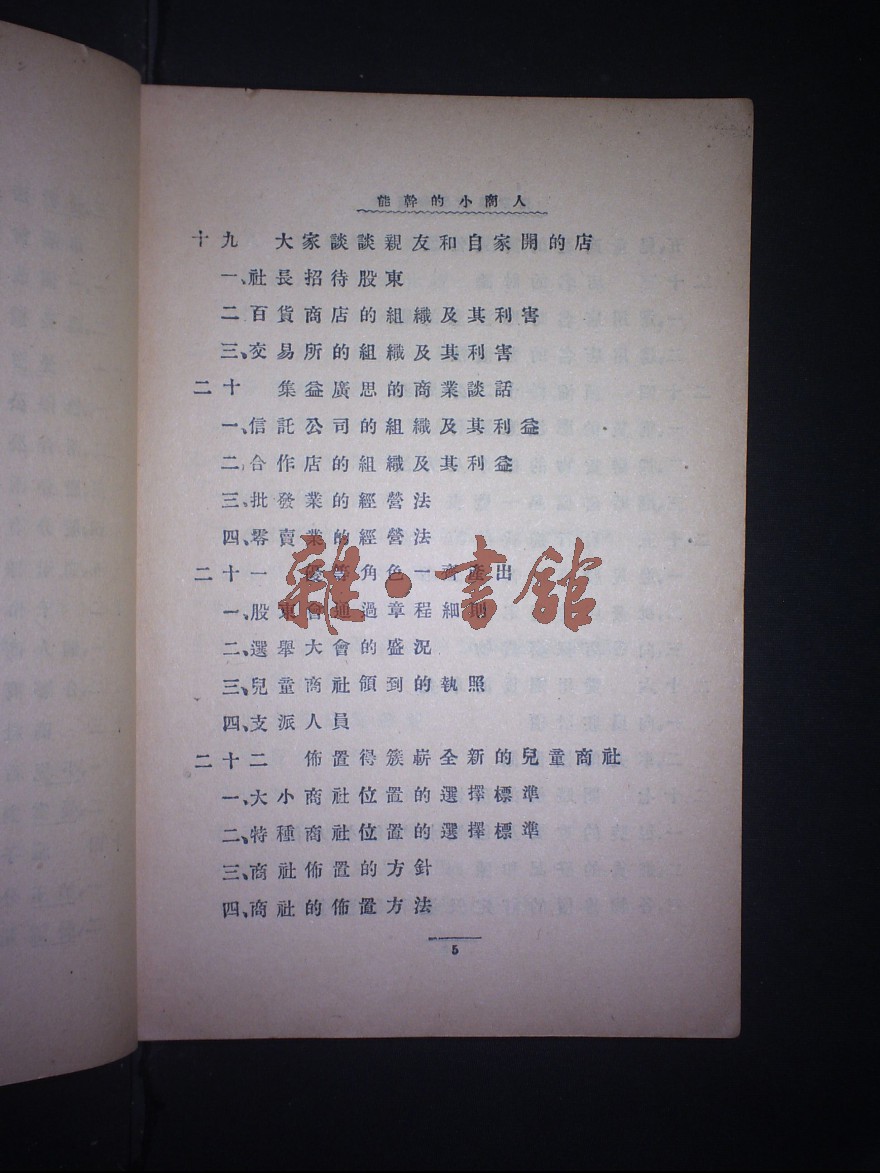 能幹的小商人
十九 大家談談親友和自家開的店
一、社長招待股東
二百貨商店的組織及其利害
三、交易所的組織及其利害
二十 集益廣思的商業談話
一、信託公司的組織及其利益
二、合作店的組織及其利益
三、批發業的經營法
四、零賣業的經營法
二十一 優等角色一齊產出
一、股東會通過章程細則
二、選舉大會的盛況
三、兒童商社領到的執照
四、支派人員
二十二 佈置得簇嶄全新的兒童商社
一、大小商社位置的選擇標準
二、特種商社位置的選擇標準
三、商社佈置的方針
四、商社的佈置方法
5
雜·書館